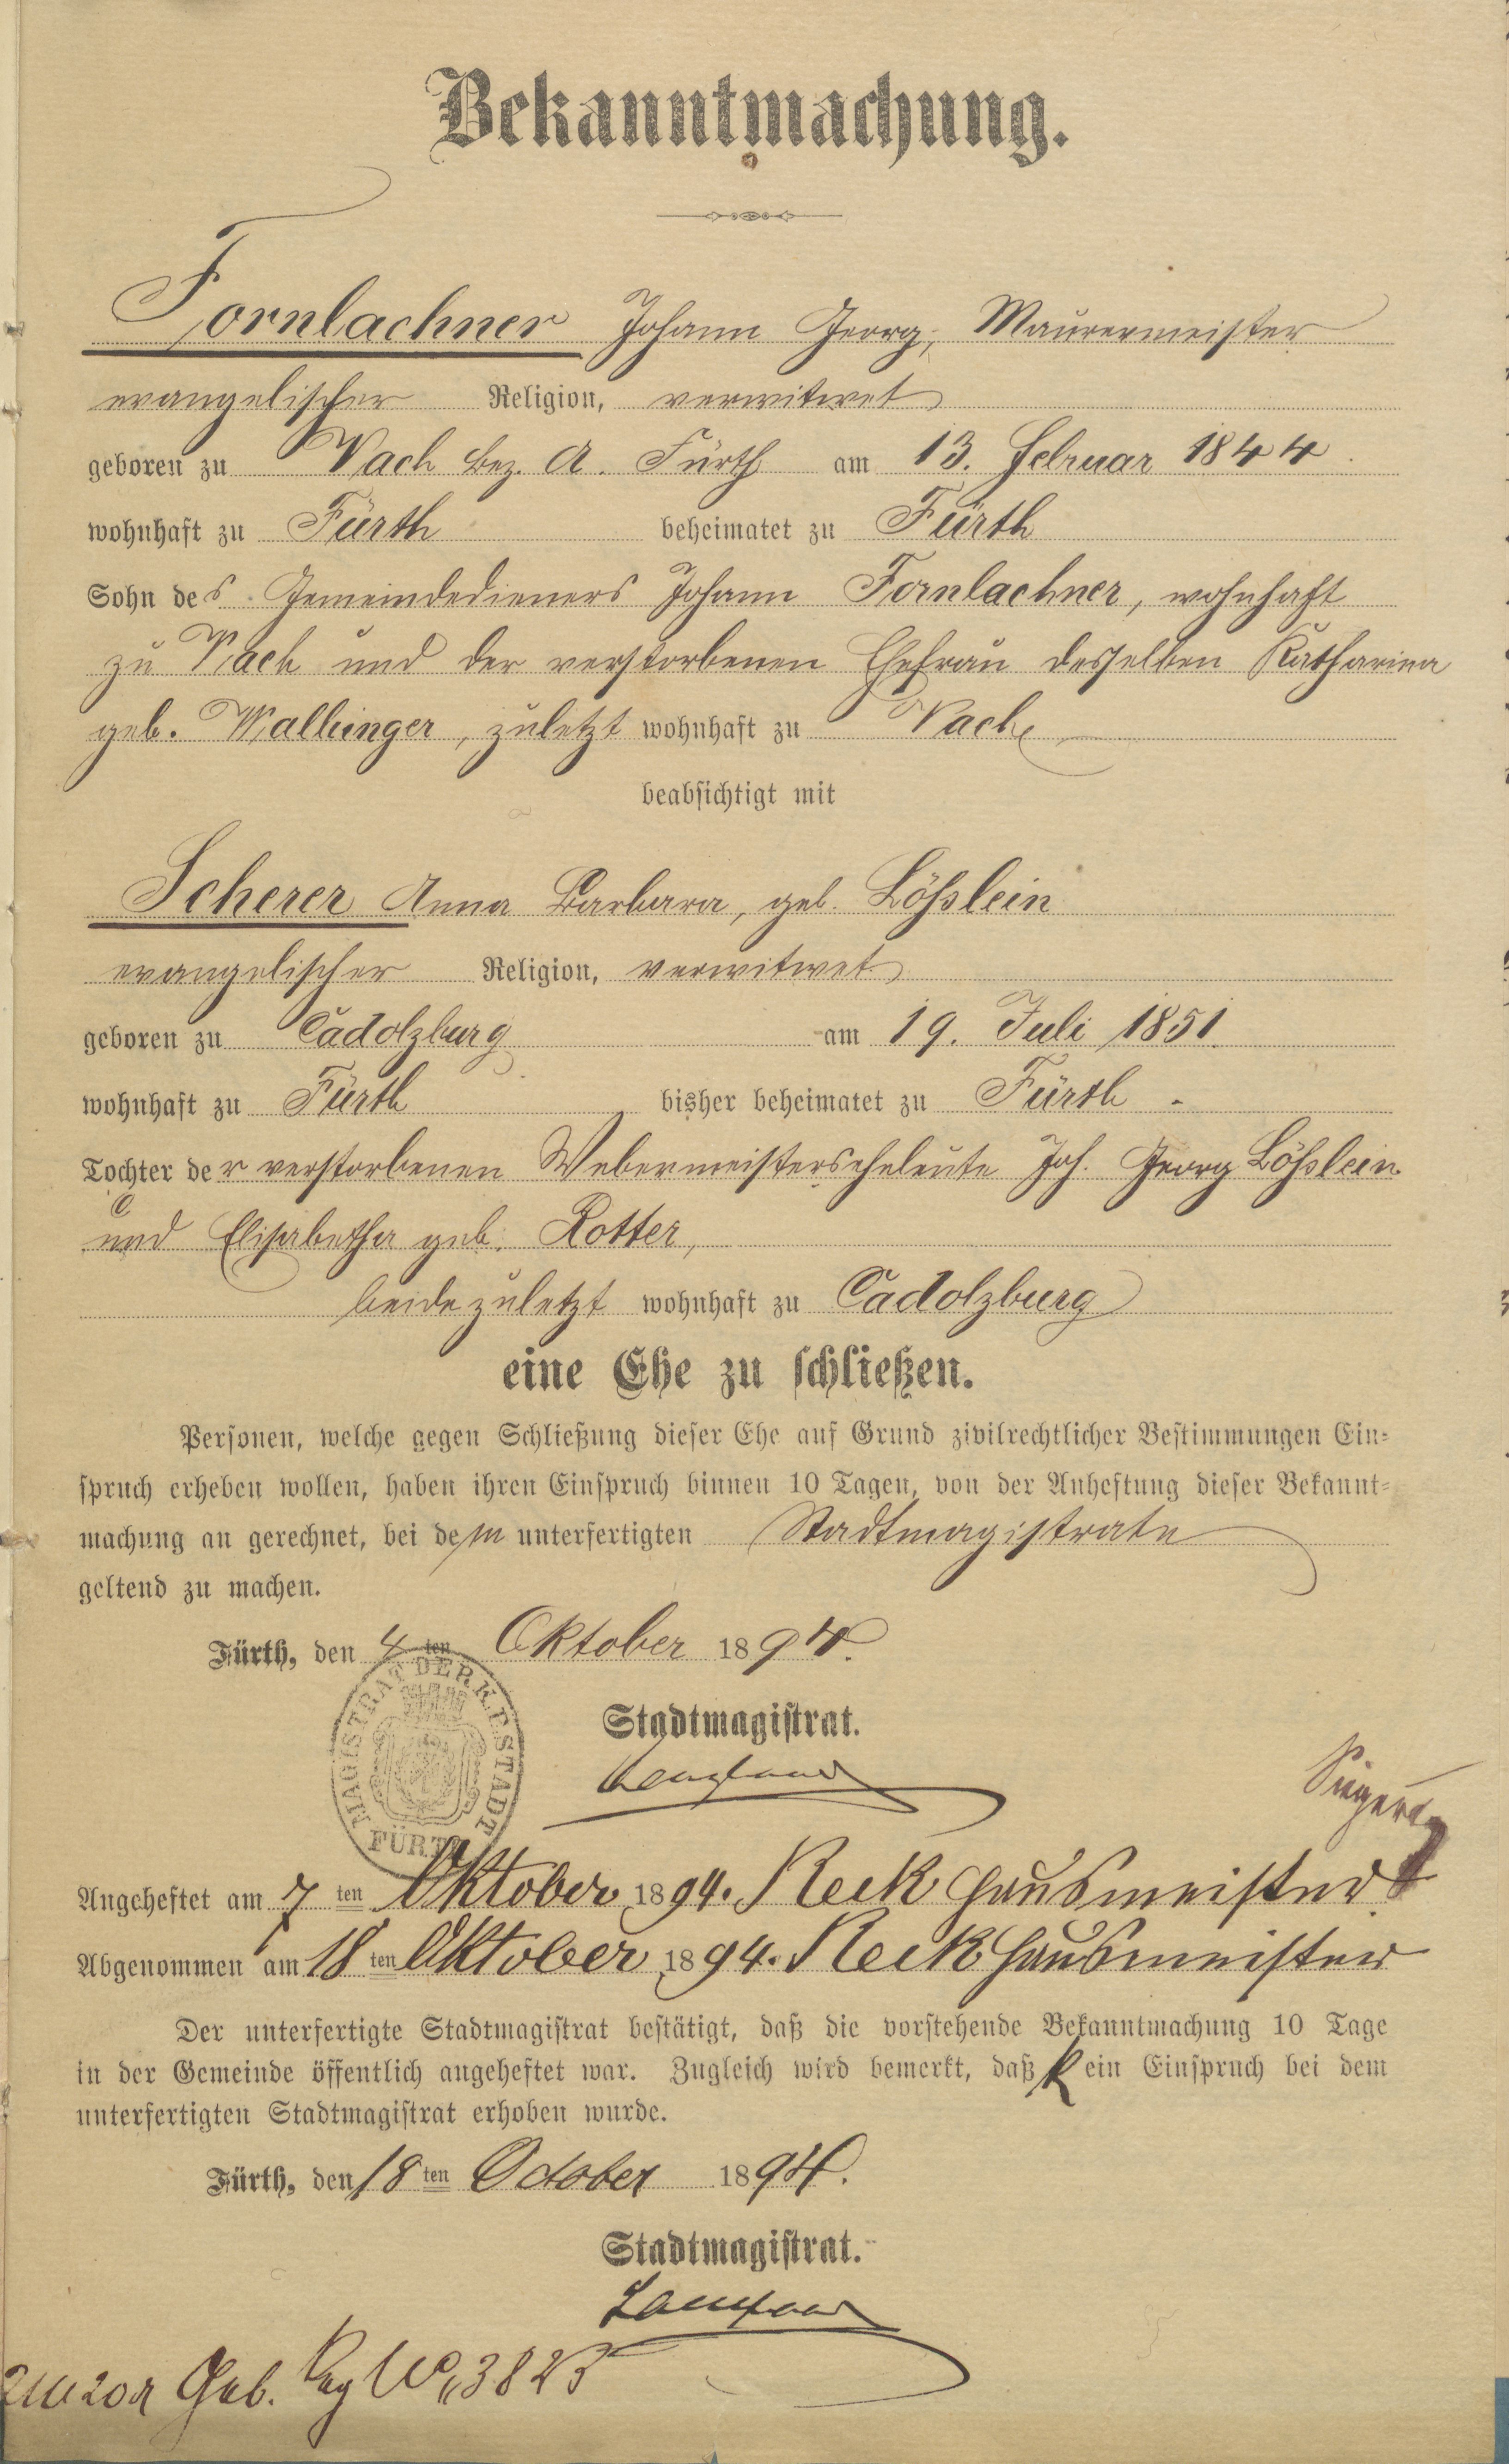 Bekanntmachung.
Fornlachner Johann Georg, Maurermeister
evangelischer Religion, verwitwet
geboren zu Vach Bez. A. Fürth am 13. Februar 1844.
wohnhaft zu Fürth beheimatet zu Fürth
Sohn des Gemeindedieners Johann Fornlachner, wohnhaft
zu Vach und der verstorbenen Ehefrau desselben Katharina
geb. Wallinger, zuletzt wohnhaft zu Vach
beabsichtigt mit
Scherer Anna Barbara, geb. Lößlein
evangelischer Religion, verwitwet
geboren zu Cadolzburg am 19. Juli 1851.
wohnhaft zu Fürth bisher beheimatet zu Fürth
Tochter der verstorbenen Webermeisterseheleute Joh. Georg Lößlein
und Elisabetha geb. Rotter,
beide zuletzt wohnhaft zu Cadolzburg
eine Ehe zu schließen.
Personen, welche gegen Schließung dieser Ehe auf Grund zivilrechtlicher Bestimmungen Ein-
spruch erheben wollen, haben ihren Einspruch binnen 10 Tagen, von der Anheftung dieser Bekannt-
machung an gerechnet, bei dem unterfertigten Stadtmagistrate
geltend zu machen.
Fürth, den 4ten Oktober 1894.
MAGISTRAT DER K.B. STADT FÜRTH
Stadtmagistrat.
Angeheftet am 7ten Oktober 1894. Reck Hausmeister
Abgenommen am 18ten Oktober 1894. Reck Hausmeister
Der unterfertigte Stadtmagistrat bestätigt, daß die vorstehende Bekanntmachung 10 Tage
in der Gemeinde öffentlich angeheftet war. Zugleich wird bemerkt, daß kein Einspruch bei dem
unterfertigten Stadtmagistrat erhoben wurde.
Fürth, den 18ten October 1894.
Stadtmagistrat.
Geb. Reg No 3825